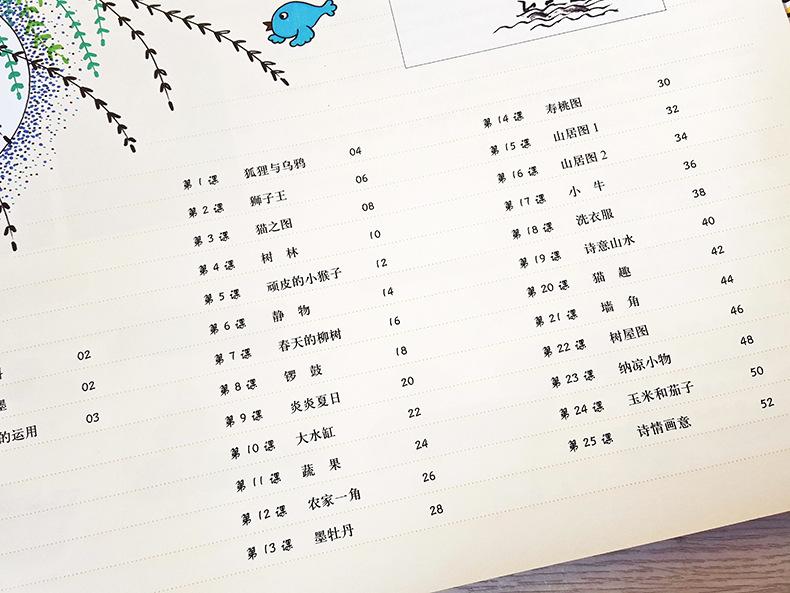 02
墨 02
的运用 03
第 1 课 狐狸与乌鸦 04
第 2 课 狮子王 06
第 3 课 猫之图 08
第 4 课 树 林 10
第 5 课 顽皮的小猴子 12
第 6 课 静 物 14
第 7 课 春天的柳树 16
第 8 课 锣 鼓 18
第 9 课 炎炎夏日 20
第 10 课 大水缸 22
第 11 课 蔬 果 24
第 12 课 农家一角 26
第 13 课 墨牡丹 28
第 14 课 寿桃图 30
第 15 课 山居图 1 32
第 16 课 山居图 2 34
第 17 课 小 牛 36
第 18 课 洗衣服 38
第 19 课 诗意山水 40
第 20 课 猫 趣 42
第 21 课 墙 角 44
第 22 课 树屋图 46
第 23 课 纳凉小物 48
第 24 课 玉米和茄子 50
第 25 课 诗情画意 52